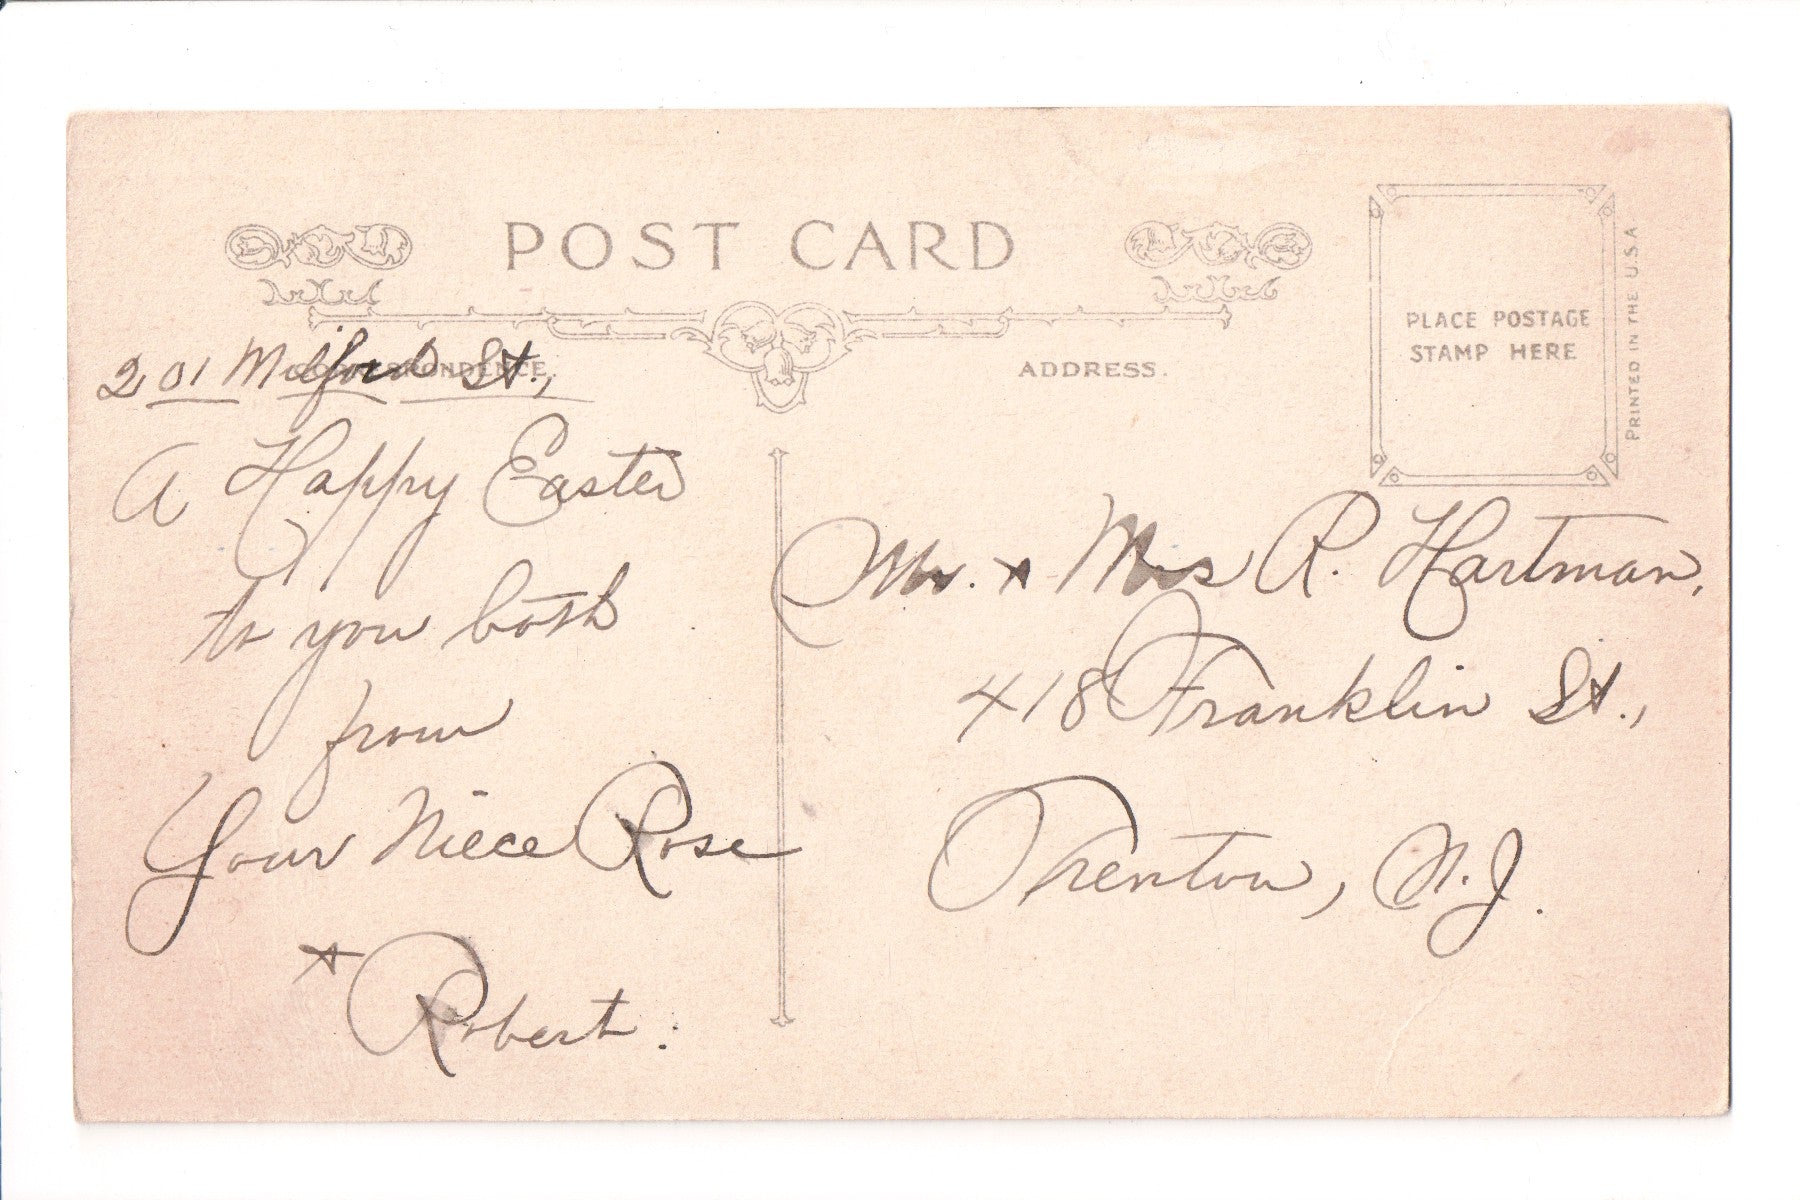 POST CARD
PLACE POSTAGE
STAMP HERE
PRINTED IN THE U.S.A
CORRESPONDENCE.
ADDRESS.
201 Milford St.,
A Happy Easter
to you both
from
Your Niece Rose
& Robert.
Mr. & Mrs R. Hartman,
418 Franklin St.,
Trenton, N.J.